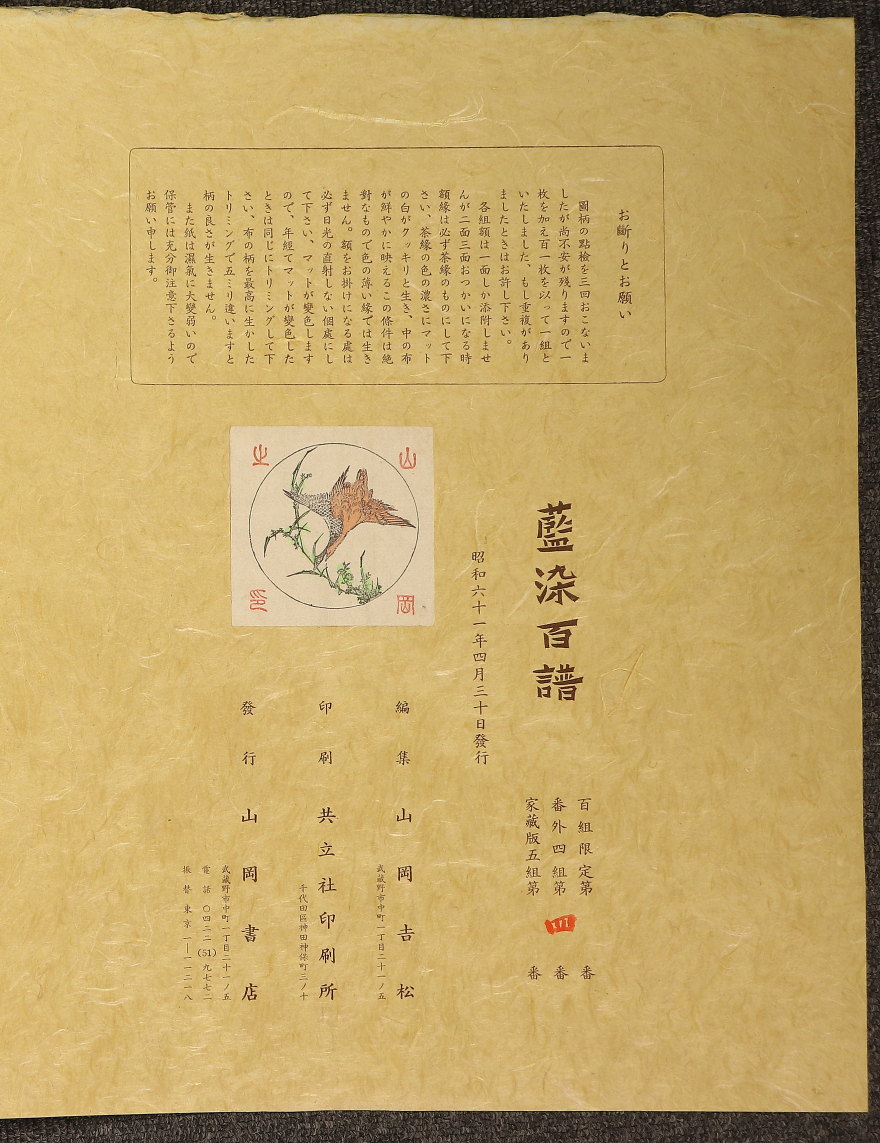 お斷りとお願い
圖柄の點檢を三回おこないま
したが尚不安が残りますので一
枚を加え百一枚を以って一組と
いたしました、もし重複があり
ましたときはお許し下さい。
各組額は一面しか添附しませ
んが二面三面おつかいになる時
額緣は必ず茶緣のものにして下
さい、茶緣の色の濃さにマット
の白がクッキリと生き、中の布
が鮮やかに映えるこの條件は絶
對なもので色の薄い緣では生き
ません。額をお掛けになる處は
必ず日光の直射しない個處にし
て下さい、マットが變色します
ので、年經てマットが變色した
ときは同じにトリミングして下
さい、布の柄を最高に生かした
トリミングで五ミリ違いますと
柄の良さが生きません。
また紙は濕氣に大變弱いので
保管には充分御注意下さるよう
お願い申します。
山岡
之印
藍染百譜
昭和六十一年四月三十日發行
百組限定第 番
番外四組第 番
家藏版五組第 番
編集 山岡吉松
武蔵野市中町一丁目二十一ノ五
印刷 共立社印刷所
千代田區神田神保町三ノ十
發行 山岡書店
武蔵野市中町一丁目二十一ノ五
電話 〇四二二(51)九七七二
振替 東京 一―一一二一八